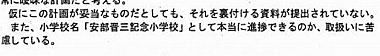 常に曖昧な計画だと考える。
仮にこの計画が妥当なものだとしても、それを裏付ける資料が提出されていない。
また、小学校名「安部晋三記念小学校」として本当に進捗できるのか、取扱いに苦
慮している。